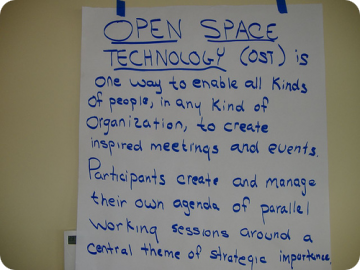 OPEN SPACE
TECHNOLOGY (OST) is
one way to enable all kinds
of people, in any kind of
organization, to create
inspired meetings and events.
Participants create and manage
their own agenda of parallel
working sessions around a
central theme of strategic importance